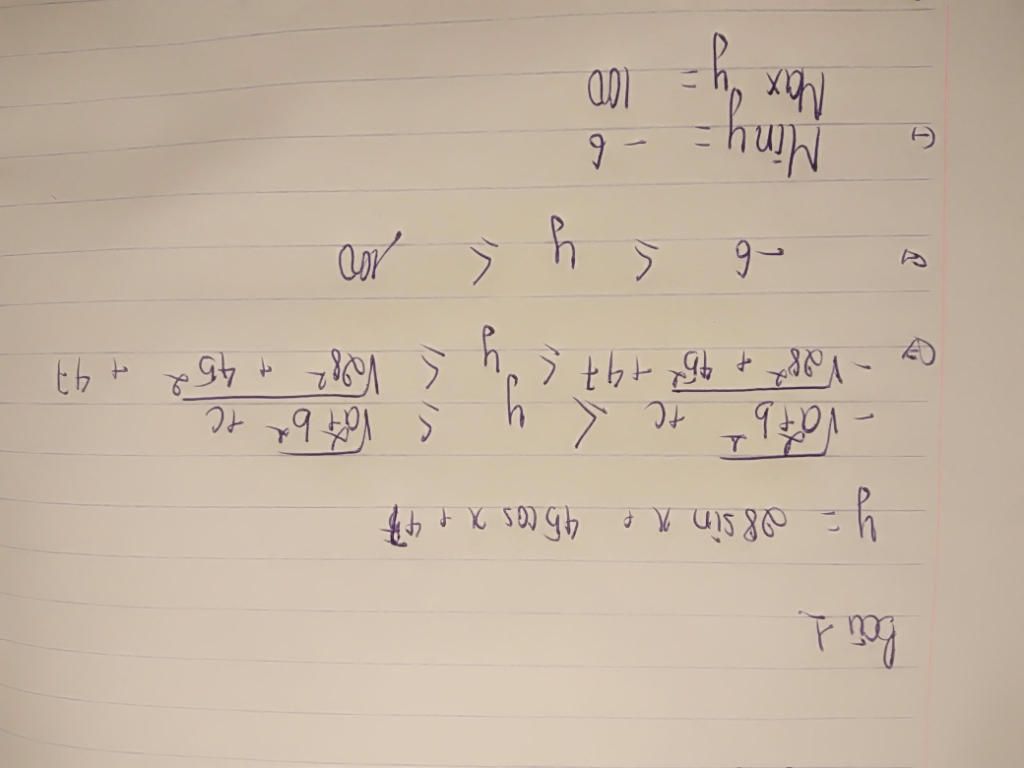 Bài 1
y = 28 sin x + 45 cos x + 47
- √a² + b² + c ≤ y ≤ √a² + b² + c
⇔ - √28² + 45² + 47 ≤ y ≤ √28² + 45² + 47
⇔ -6 ≤ y ≤ 100
⇒ Min y = - 6
Max y = 100